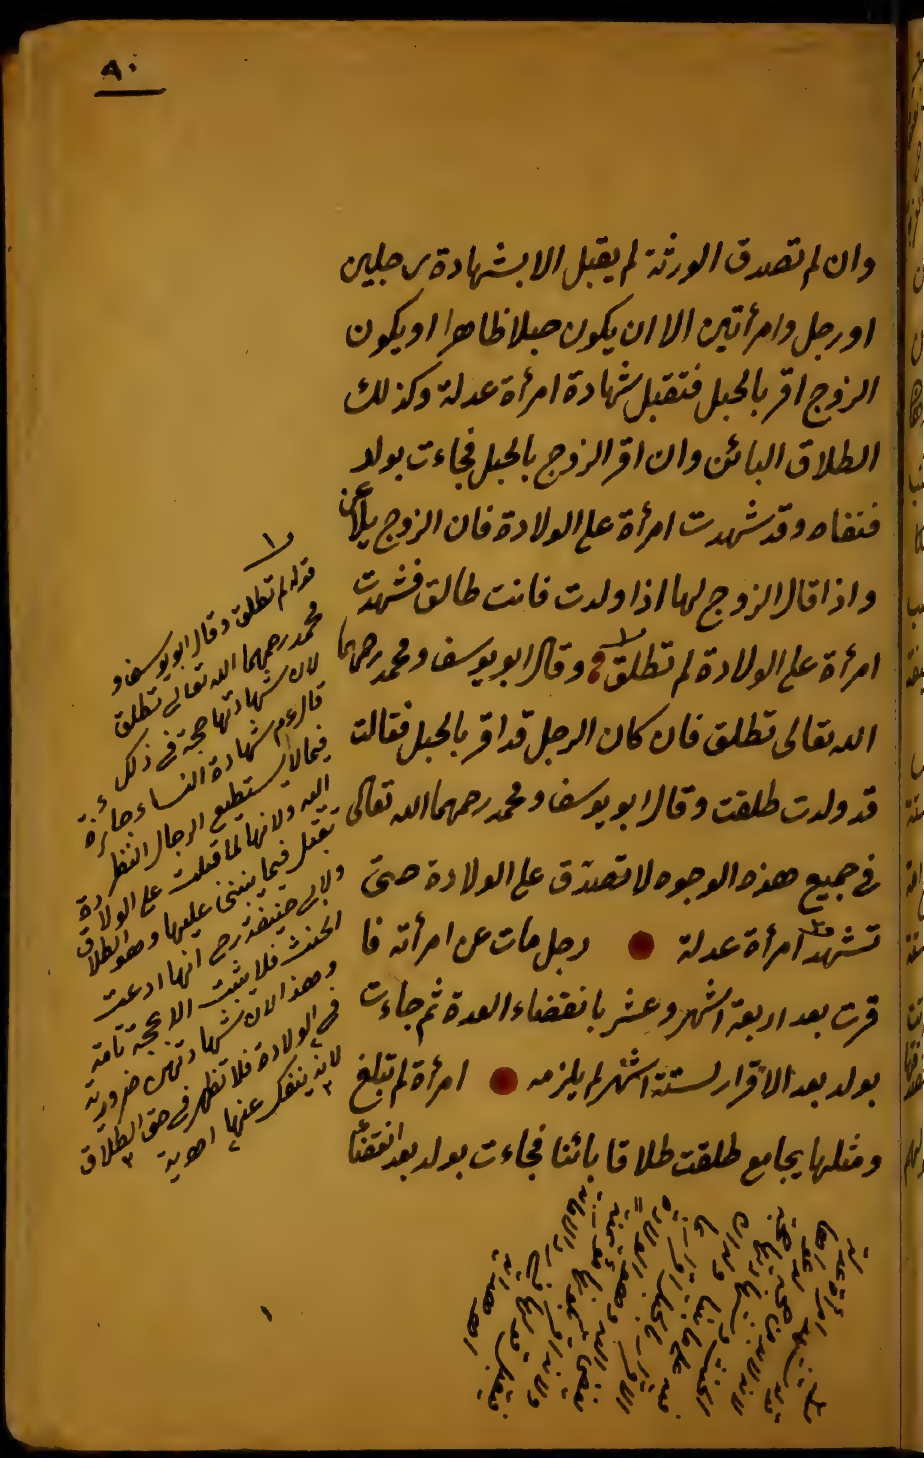 ٩٠
وان لم تصدق الورثة لم يقبل الا بشهادة رجلين
او رجل وامرأتين الا ان يكون حبلا ظاهرا او يكون
الزوج اقر بالحبل فتقبل شهادة امرأة عدلة وكذلك
الطلاق البائن وان اقر الزوج بالحبل فجاءت بولد
فنفاه وقد شهدت امرأة على الولادة فان الزوج يلاعن
واذا قال الزوج لها اذا ولدت فانت طالق فشهدت
امرأة على الولادة لم تطلق وقال ابو يوسف ومحمد رحمهما
الله تعالى تطلق فان كان الرجل قد اقر بالحبل فقالت
قد ولدت طلقت وقال ابو يوسف ومحمد رحمهما الله تعالى
في جميع هذه الوجوه لا تصدق على الولادة حتى
تشهد امرأة عدلة رجل مات عن امرأته فا
قرت بعد اربعة اشهر وعشر بانقضاء العدة ثم جاءت
بولد بعد الاقرار لستة اشهر لم يلزمه امرأة لم تبلغ
ومثلها يجامع طلقت طلاقا بائنا فجاءت بولد بعد انقضا
١
قوله لم تطلق وقال ابو يوسف و
محمد رحمهما الله تعالى تطلق
لان شهادتها حجة في ذلك
قال عم شهادة النساء جائزة
فيما لا يستطيع الرجال النظر
اليه ولانها لما قبلت على الولادة
تقبل فيما يبتنى عليها وهو الطلاق
ولابي حنيفة رح انها ادعت
الحنث فلا يثبت الا بحجة تامة
وهذا لان شهادتهن ضرورية
في الولادة فلا تظهر في حق الطلاق
لانه ينفك عنها هداية